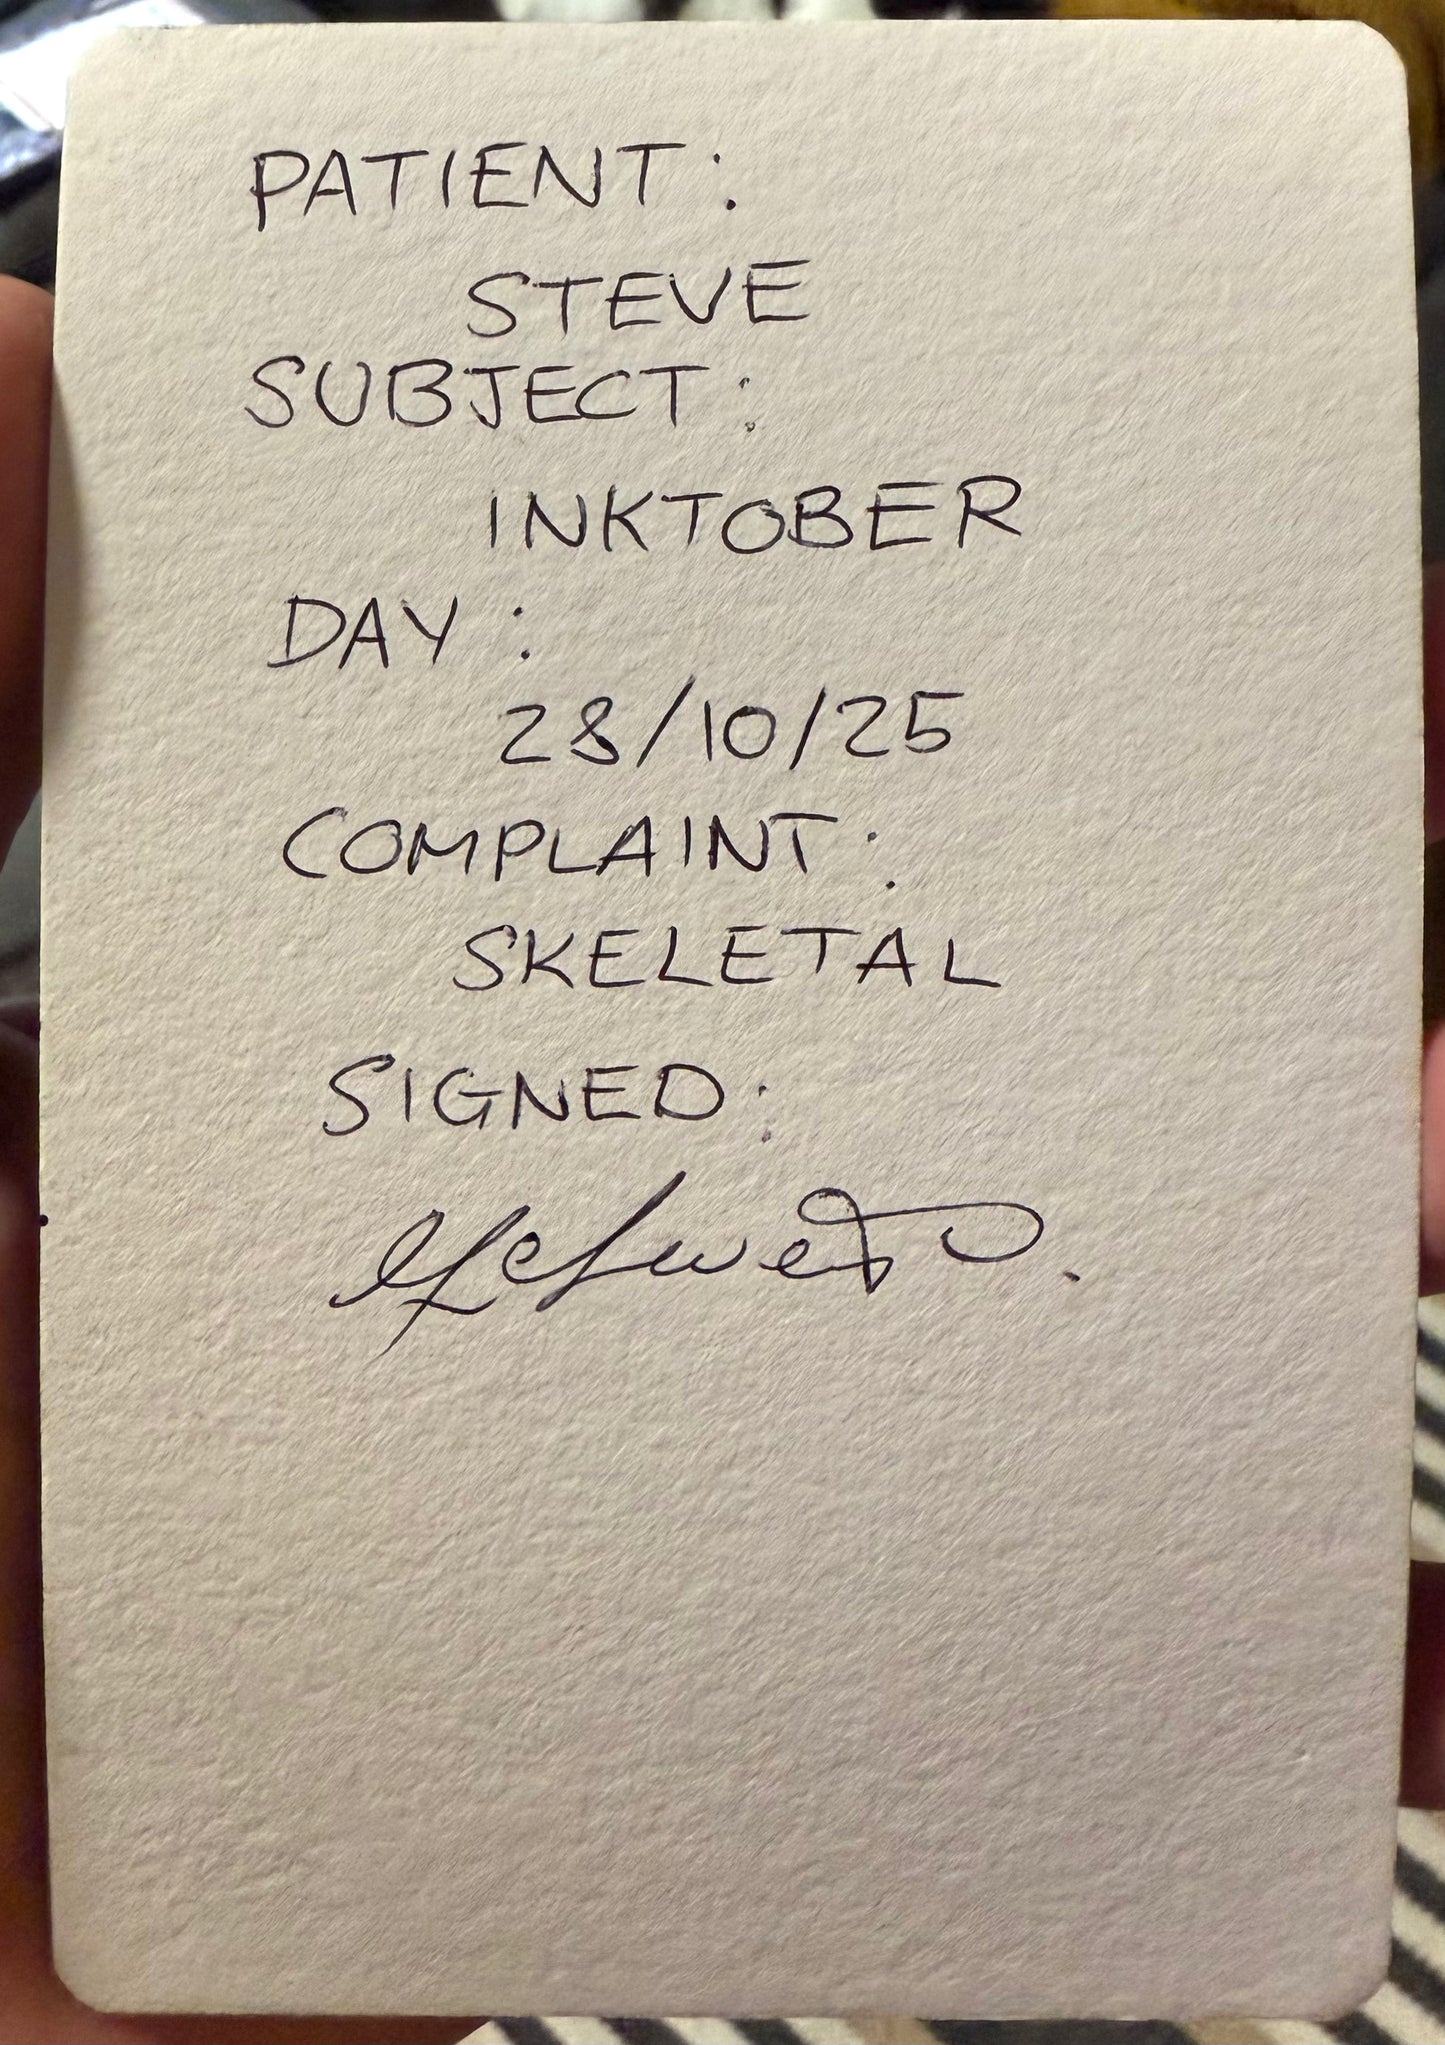 PATIENT:
STEVE
SUBJECT:
INKTOBER
DAY:
28/10/25
COMPLAINT:
SKELETAL
SIGNED: